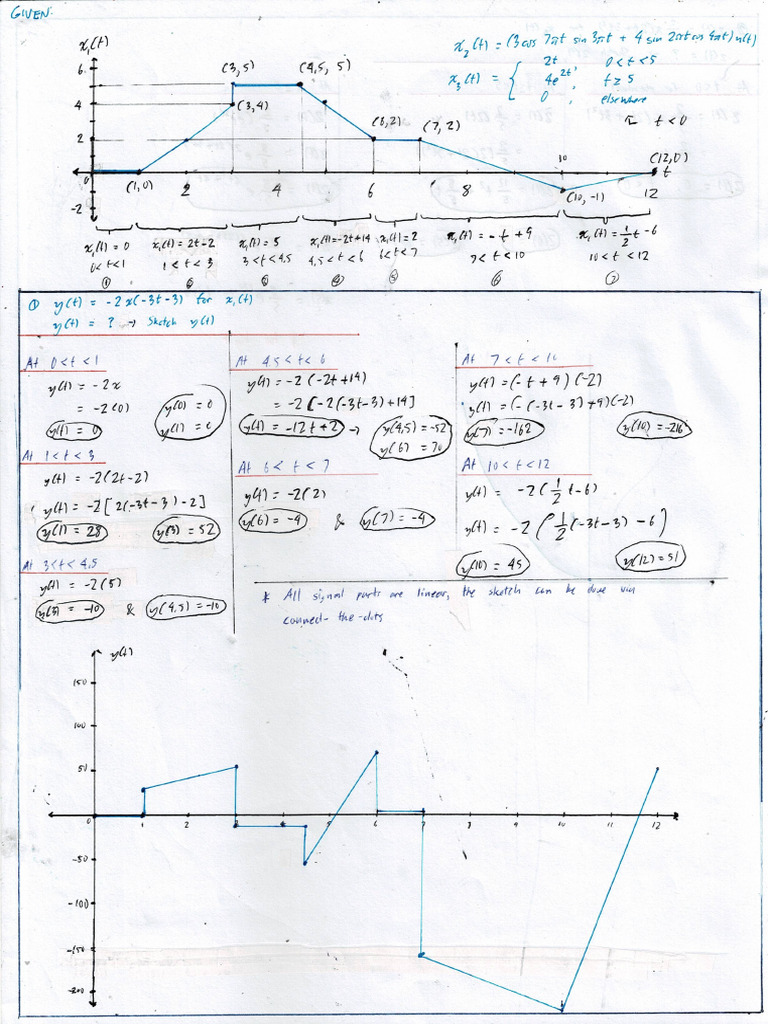 GIVEN:
x₁(t)
x₂(t) = (3 cos 7πt sin 3πt + 4 sin 2πt cos 4πt) u(t)
x₃(t) = { 2t, 0<t<5
4e^{2t}, t≥5
0, elsewhere
t<0
(3,5) (4,5, 5)
(3,4)
(6,2) (7,2)
(1,0) (10,-1) (12,0)
6
4
2
0
-2
2 4 6 8 10 12 t
x₁(t)=0 x₁(t)=2t-2 x₁(t)=5 x₁(t)=-2t+14 x₁(t)=2 x₁(t)=-t+9 x₁(t)=1/2 t-6
0<t<1 1<t<3 3<t<4,5 4,5<t<6 6<t<7 7<t<10 10<t<12
① y(t) = -2x(-3t-3) for x₁(t)
y(t) = ? → Sketch y(t)
At 0<t<1
y(t) = -2x
= -2(0)
y(t) = 0
y(0) = 0
y(1) = 0
At 1<t<3
y(t) = -2(2t-2)
y(t) = -2[2(-3t-3)-2]
y(1) = 28 y(3) = 52
At 3<t<4,5
y(t) = -2(5)
y(3) = -10 & y(4,5) = -10
At 4,5<t<6
y(t) = -2(-2t+14)
= -2[-2(-3t-3)+14]
y(t) = -12t+2 →
y(4,5) = -52
y(6) = 70
At 6<t<7
y(t) = -2(2)
y(6) = -4 & y(7) = -4
At 7<t<10
y(t) = (-t+9)(-2)
y(t) = (-(-3t-3)+9)(-2)
y(7) = -162 y(10) = -216
At 10<t<12
y(t) = -2(1/2 t-6)
y(t) = -2(1/2(-3t-3)-6)
y(10) = 45 y(12) = 51
* All signal parts are linear, the sketch can be done via
connect-the-dots
y(t)
150
100
50
-50
-100
-150
-200
1 2 3 4 5 6 7 8 9 10 11 12